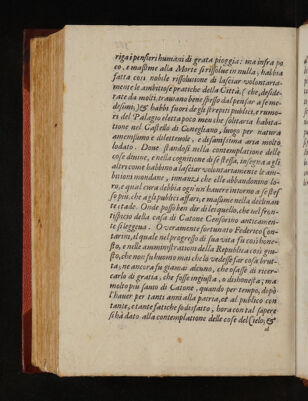 riga i pensieri humani di grata pioggia: ma infra po
co, e massime alla Morte si rissolue in nulla, habbia
fatta cosi nobile rissolutione di lasciar volontaria-
mente le ambitiose pratiche della Città, (che, deside-
rate da molti, trauano bene spesso dal pensar a se me-
desimi,) & habbi fuori de gli strepiti publici, e rumo-
ri del Palagio eletta poco men che solitaria habita-
tione nel Castello di Conegliano, luogo per natura
amenissimo e diletteuole, e di sanissima aria molto
lodato. Doue standosi nella contemplatione delle
cose diuine, e nella cognitione di se stessa, insegna a gli
altri come habbino a lasciar volontariamente le am-
bitioni mondane, innanzi che elle abbandonino lo-
ro, e qual cura debbia ogn'un hauere intorno a se stes-
so più, che a gli publici affari, e massime nella declinan
te etade. Onde possi ben dir di lei quello, che nel fron-
tispicio della casa di Catone Censorino anticamen-
te si leggeua. O veramente fortunato Federico Con-
tarini, il quale nel progresso di sua vita fu così hone-
sto, e nelle amministrationi della Republica così giu-
sto, che non fu huomo mai che lo vedesse far cosa brut-
ta, ne ancora fu giamai alcuno, che osasse di ricer-
carlo di gratia, che fosse ingiusta, o dishonesta; ma
molto più sauio di Catone, quando per tempo, dopò
l'hauer per tanti anni alla patria, et al publico con
tante, e tante fatiche sodisfatto, hora con tal sapere
si hà dato alla contemplatione delle cose del Cielo, &